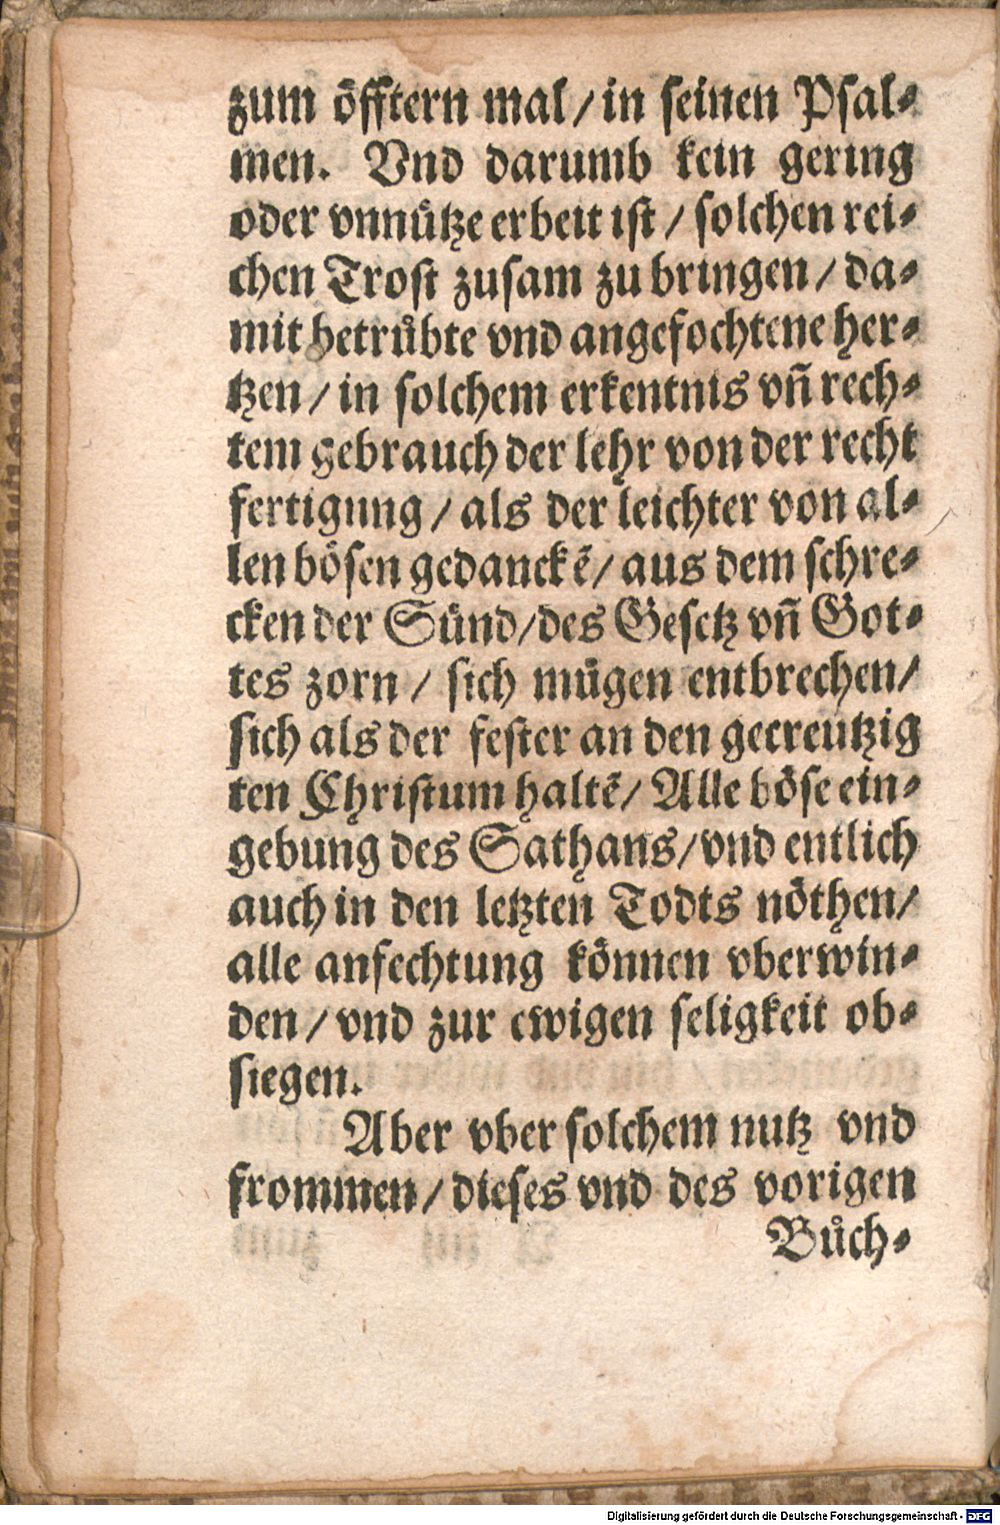 zum öfftern mal / in seinen Psal⸗
men. Vnd darumb kein gering
oder vnnütze erbeit ist / solchen rei⸗
chen Trost zusam zu bringen / da⸗
mit betrübte vnd angefochtene her⸗
tzen / in solchem erkentnis vn̄ rech⸗
tem gebrauch der lehr von der recht
fertigung / als der leichter von al⸗
len bösen gedanckē / aus dem schre⸗
cken der Sünd / des Gesetz vn̄ Got⸗
tes zorn / sich mügen entbrechen /
sich als der fester an den gecreutzig
ten Christum haltē / Alle böse ein⸗
gebung des Sathans / vnd entlich
auch in den letzten Todts nöthen /
alle anfechtung können vberwin⸗
den / vnd zur ewigen seligkeit ob⸗
siegen.
Aber vber solchem nutz vnd
frommen / dieses vnd des vorigen
Büch⸗
Digitalisierung gefördert durch die Deutsche Forschungsgemeinschaft - DFG